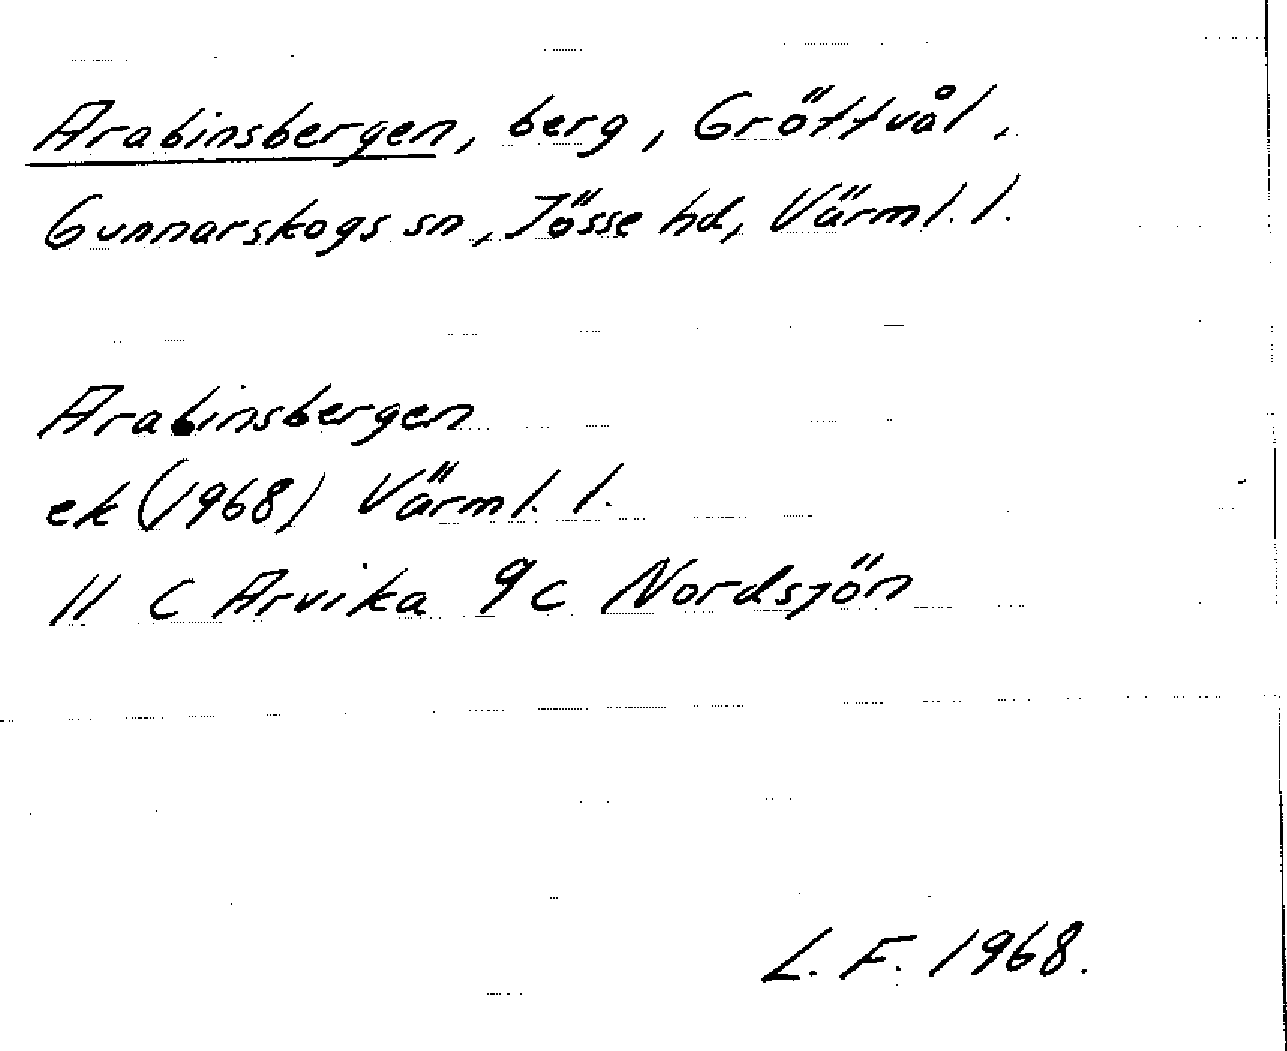 Arabinsbergen, berg, Gröttvål,
Gunnarskogs sn, Jösse hd, Värml. l.
Arabinsbergen
ek (1968) Värml. l.
11 C Arvika 9c Nordsjön
L. F. 1968.